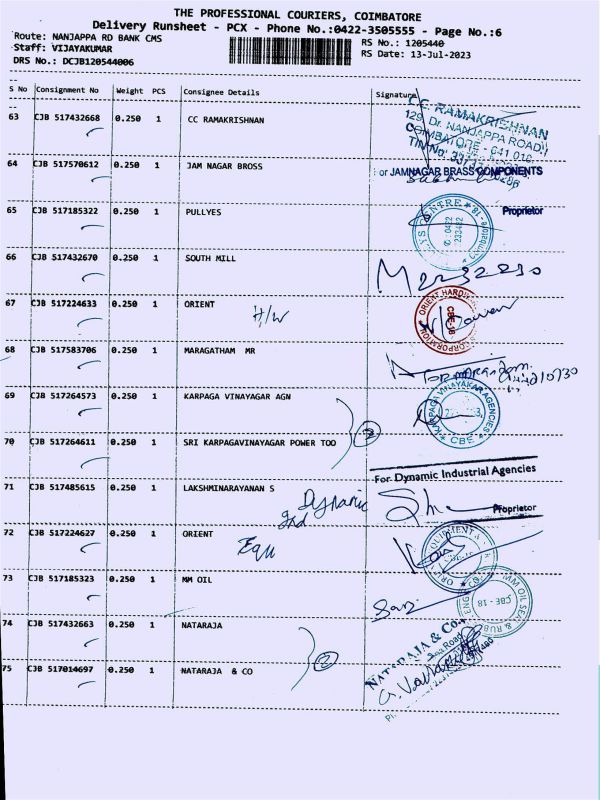 THE PROFESSIONAL COURIERS, COIMBATORE
Delivery Runsheet - PCX - Phone No.:0422-3505555 - Page No.:6
Route: NANJAPPA RD BANK CMS
RS No.: 1205440
Staff: VIJAYAKUMAR
RS Date: 13-Jul-2023
DRS No.: DCJB120544006
S No Consignment No Weight PCS Consignee Details Signature
63 CJB 517432668 0.250 1 CC RAMAKRISHNAN
CC RAMAKRISHNAN
129, Dr. NANJAPPA ROAD
COIMBATORE - 641 018
64 CJB 517570612 0.250 1 JAM NAGAR BROSS
For JAMNAGAR BRASS COMPONENTS
Proprietor
65 CJB 517185322 0.250 1 PULLYES
66 CJB 517432670 0.250 1 SOUTH MILL
67 CJB 517224633 0.250 1 ORIENT
H/W
ORIENT HARDWARE CORPORATION
CBE-18
68 CJB 517583706 0.250 1 MARAGATHAM MR
69 CJB 517264573 0.250 1 KARPAGA VINAYAGAR AGN
KARPAGA VINAYAKAR AGENCIES
CBE
70 CJB 517264611 0.250 1 SRI KARPAGAVINAYAGAR POWER TOO
2
For Dynamic Industrial Agencies
71 CJB 517485615 0.250 1 LAKSHMINARAYANAN S
Dynamic
Ind
Proprietor
72 CJB 517224627 0.250 1 ORIENT
Equ
73 CJB 517185323 0.250 1 MM OIL
MM OIL SEAL & RUBB
CBE - 18
74 CJB 517432663 0.250 1 NATARAJA
2
NATARAJA & Co.
75 CJB 517014697 0.250 1 NATARAJA & CO